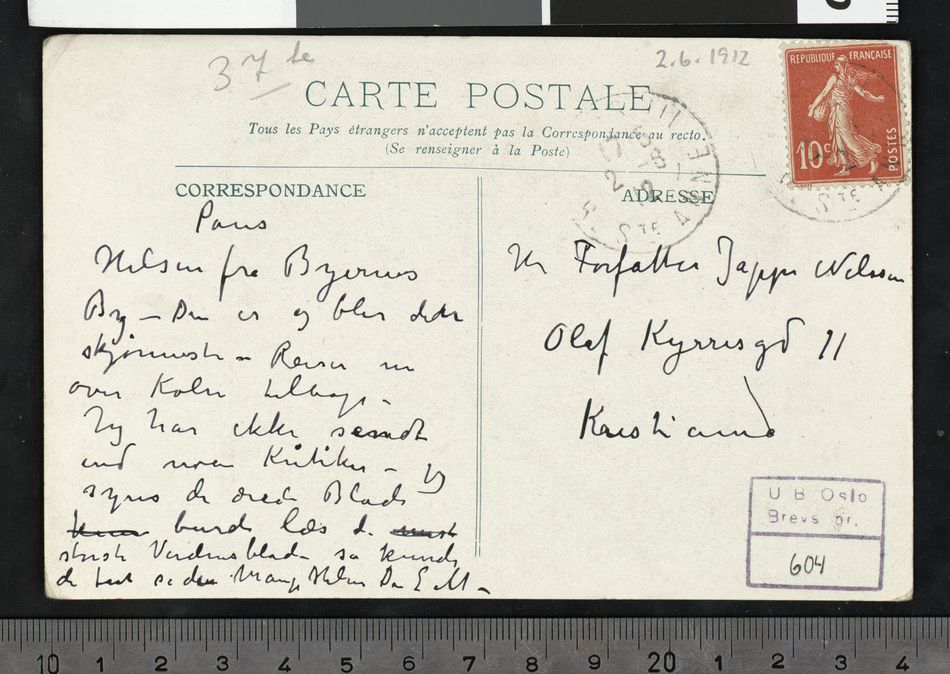 37 te
2.6.1912
CARTE POSTALE
Tous les Pays étrangers n'acceptent pas la Correspondance au recto.
(Se renseigner à la Poste)
REPUBLIQUE FRANÇAISE
10c
POSTES
CORRESPONDANCE
ADRESSE
STE ANNE
Paris
Hilsen fra Byernes
By – Den er og blir den
skjønneste – Reiser nu
over Køln tilbage –
Jeg har ikke sendt
ind noen Kritiker – Jeg
syns de ærede Blade
burde læse de
største Verdensblade så kunde
de Mange Hilsen Din E M –
Hr Forfatter Jappe Nilssen
Olaf Kyrresgd 11
Kristiania
U B Oslo
Brevs. nr.
604
10 1 2 3 4 5 6 7 8 9 20 1 2 3 4